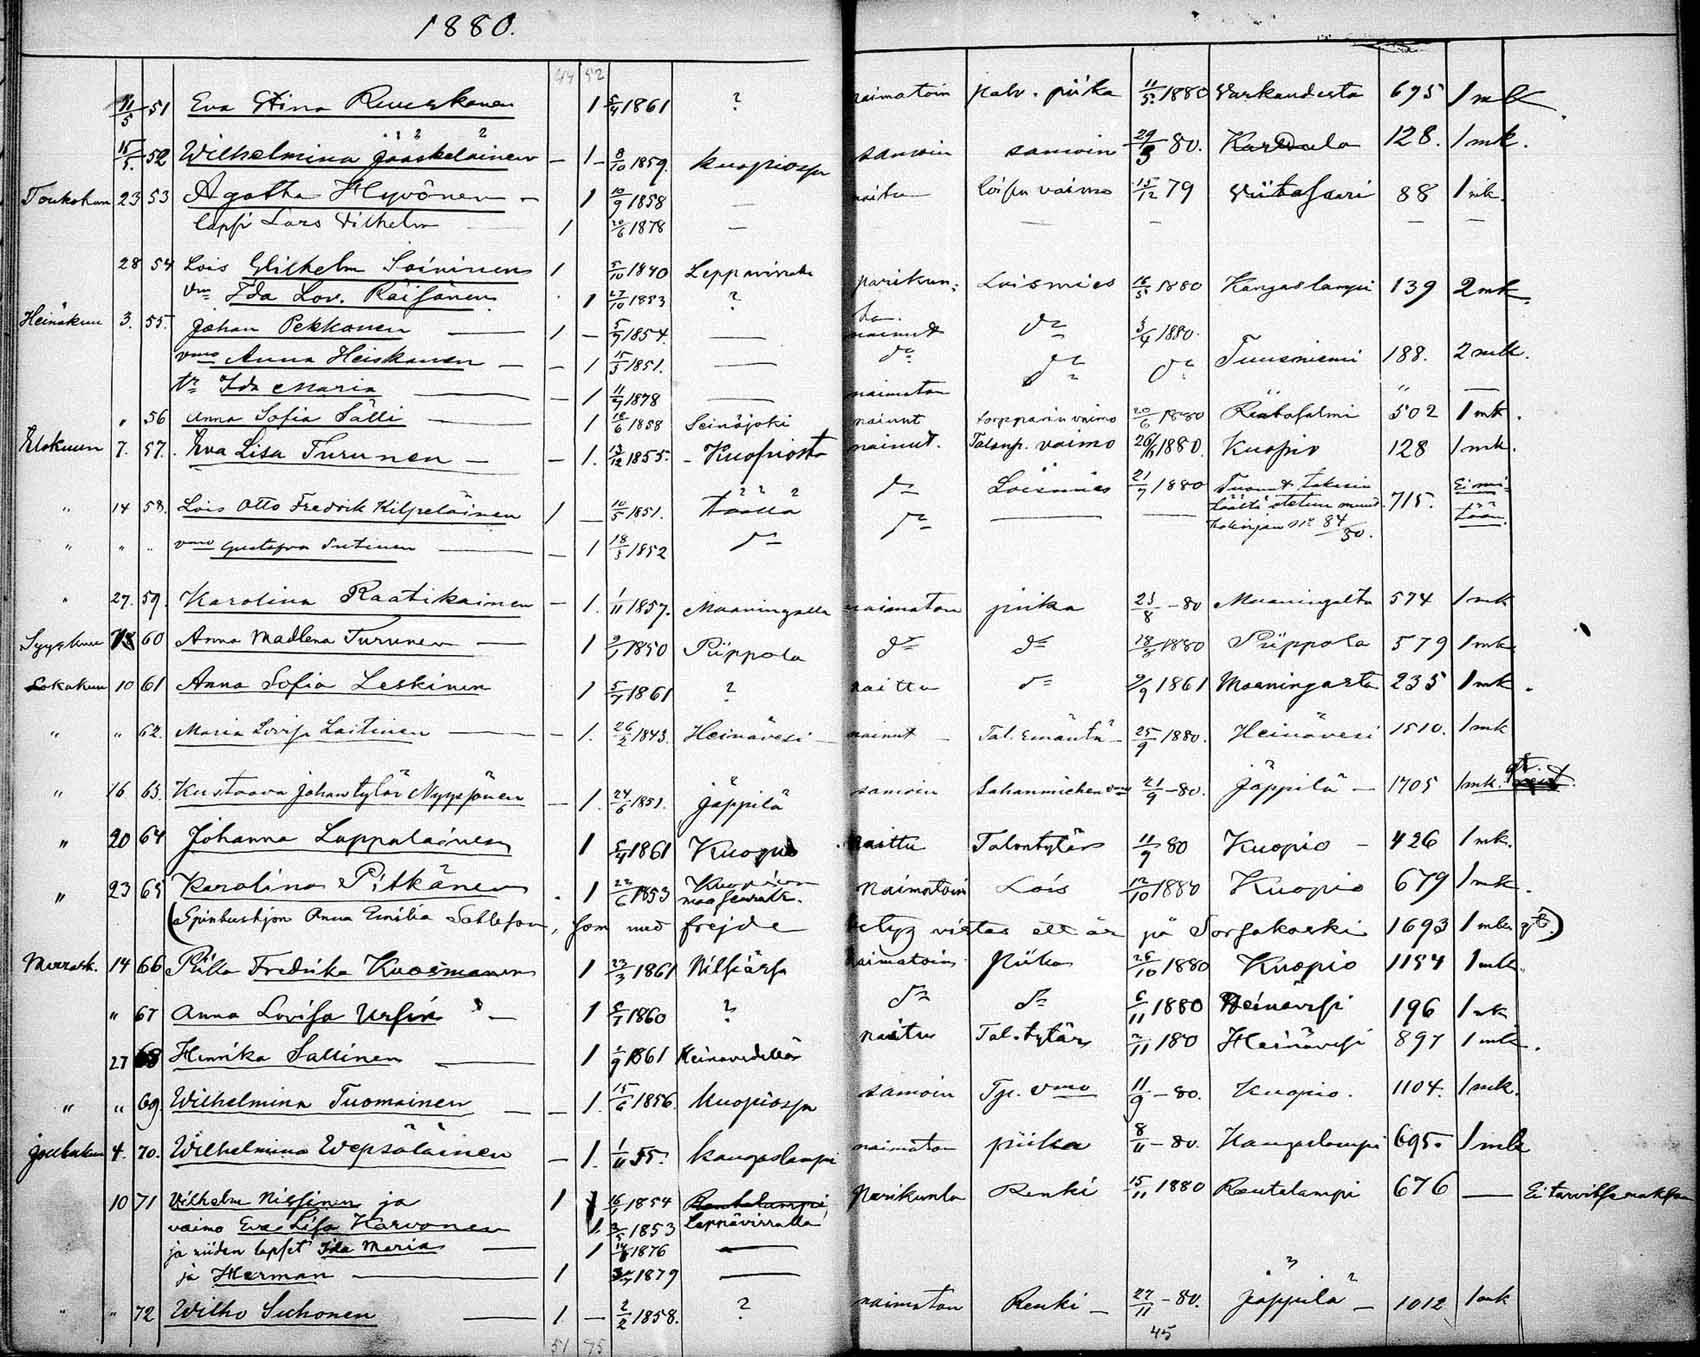 1880.
44 52
11/5 51 Eva Stina 1 5/4 1861 ? naimatoin palv. piika 11/5 1880 Warkaudesta 695 1 mk
15/5 52 Wilhelmina Jääskeläinen — 1 — 8/10 1859. Kuopiossa samoin samoin 29/3 80. Karttula 128. 1 mk.
Toukokuu 23 53 Agatha Hyvönen — 1 10/9 1858 — naitu loisen vaimo 15/12 79 Viitasaari 88 1 mk.
lapsi Lars Vilhelm — 1 20/6 1878 — — — —
28 54 Lois Wilhelm Soininen 1 5/10 1840 Leppävirralta parikun- Loismies 16/5 1880 Kangaslampi 139 2 mk.
vm Ida Lov. Räisänen 1 27/10 1853 ? ta.
Heinäkuu 3. 55. Johan Pekkonen — 1 — 5/9 1854. — nainut do 3/4 1880.
vmo Anna Heiskanen — — 1 15/5 1851. — do do do Tuusniemi 188. 2 mk.
tr Ida Maria — — 1 11/9 1878 — naimaton " —
" 56 Anna Sofia Sälli — 1 18/6 1858 Seinäjoki nainut torpparin vaimo 20/6 1880 Rautasalmi 502 1 mk.
Elokuun 7. 57. Eva Lisa Turunen — — 1. 13/12 1855. — Kuopiosta nainut. Talonp. vaimo 1880. Kuopio 128 1 mk.
" 14 58. Lois Otto Fredrik Kilpeläinen 1 — 10/5 1851. täällä do Loismies 21/7 1880 täältä otetun muut- 715. Ei mi-
takirjan No 84/80. tään.
" " " vmo Gustafva — 1 18/3 1852 do do — —
" 27. 59. Karolina Raatikainen — 1. 1/11 1857. Maaningalla naimaton piika 23/8 — 80 Maaningalta 574 1 mk
Syyskuu 18 60 Anna Madlena Turunen — 1 1850 Piippola do do 1880 Piippola 579 1 mk
Lokakuu 10 61 Anna Sofia Leskinen 1 5/7 1861 ? naittu do 2/9 1861 Maaningasta 235 1 mk.
" " 62. Maria Lovisa Laitinen — — 1. 26/2 1843. Heinävesi — nainut — Tal. emäntä — 25/9 1880. Heinävesi 1510. 1 mk
" 16 63. Kustaava Johantytär Nyyssönen — 1. 24/6 1851. Jäppilä samoin Sahanmiehen vm 21/9 — 80. Jäppilä — 1705 1 mk.
" 20 64 Johanna Lappalainen 1 5/4 1861 Kuopio naittu Talontytär 11/9 80 Kuopio — 426 1 mk.
" 23 65 Karolina Pitkänen . 1 22/6 1853 Kuopion maaseurak. Naimatoin Lois 12/10 1880 Kuopio 679 1 mk.
(Spinhushjon Anna Emilia Sahlsten, som med frejde betyg vistas ell är på Sorsakoski 1693 1 mk gt.)
Marrask. 14 66 Piika Fredrika Kuosmanen 1 23/3 1861 Nilsiässä naimatoin Piika 26/10 1880 Kuopio 1154 1 mk.
" 67 Anna Lovisa Ursin — 1 5/7 1860 ? do do 6/11 1880 Heinävesi 196 1 mk
27 68 Henrika Sallinen — 1 1/9 1861 Heinävedellä naitu Tal. tytär 2/11 180 Heinävesi 897 1 mk.
" " 69. Wilhelmina Tuomainen — — 1. 15/6 1856. Kuopiossa samoin Tp. vmo 11/9 — 80. Kuopio. 1104. 1 mk.
Joulukuu 4. 70. Wilhelmina Wepsäläinen — 1. 1/11 55. Kangaslampi naimaton piika 8/11 — 80. Kangaslampi 695. 1 mk
10 71 Vilhelm Nissinen ja 1 16/1 1854 Rautalampi Parikunta Renki 15/11 1880 Rautalampi 676 — Ei tarvitse maksaa
vaimo Eva Lisa Karvonen 1 3/5 1853 Leppävirralla
ja niiden lapset Ida Maria — 1 1876 —
ja Herman — 1 1879 —
" " 72 Wilho Suhonen — 1 — 2/2 1858. ? naimaton Renki — 27/11 — 80. Jäppilä — 1012 1 mk
51 75 45